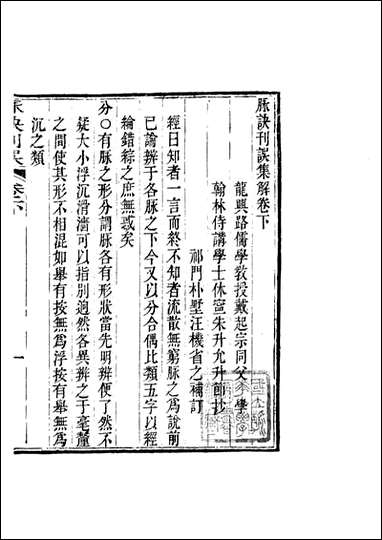 脉訣刊誤集解卷下
龍興路儒學教授戴起宗同父學
翰林侍講學士休寧朱升允升節抄
祁門朴墅汪機省之補訂
經曰知者一言而終不知者流散無窮脉之爲說前
已論辨于各脉之下今又以分合偶比類五字以經
綸錯綜之庶無惑矣
分〇有脉之形分謂脉各有形狀當先明辨便了然不
疑大小浮沉滑濇可以指別逈然各異辨之于毫釐
之間使其形不相混如舉有按無爲浮按有舉無爲
沉之類
脉訣刊誤 卷下 一